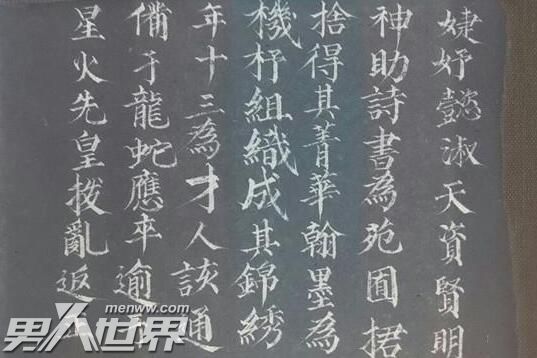 婕妤懿淑天資賢明
神助詩書為苑囿捃
捨得其菁華翰墨為
機杼組織成其錦綉
年十三為才人該通
俻于龍蛇應卒逾
星火先皇撥亂返
menww.com
男人世界